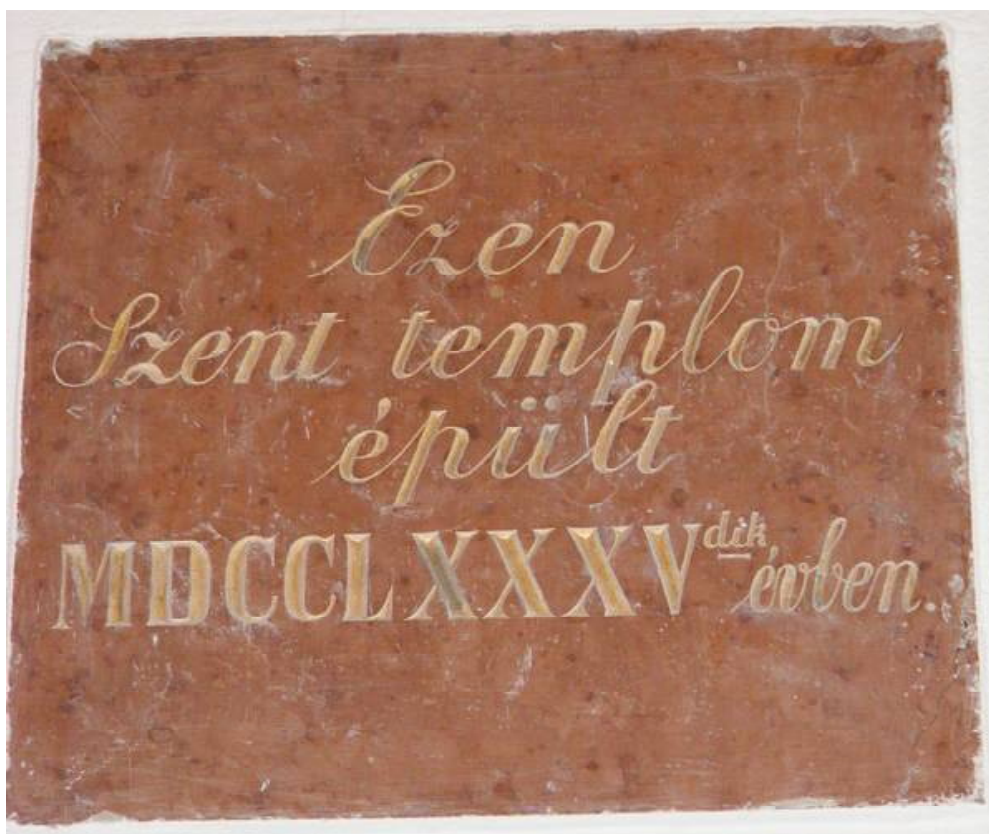 Ezen
Szent templom
épült
MDCCLXXXVdik évben.